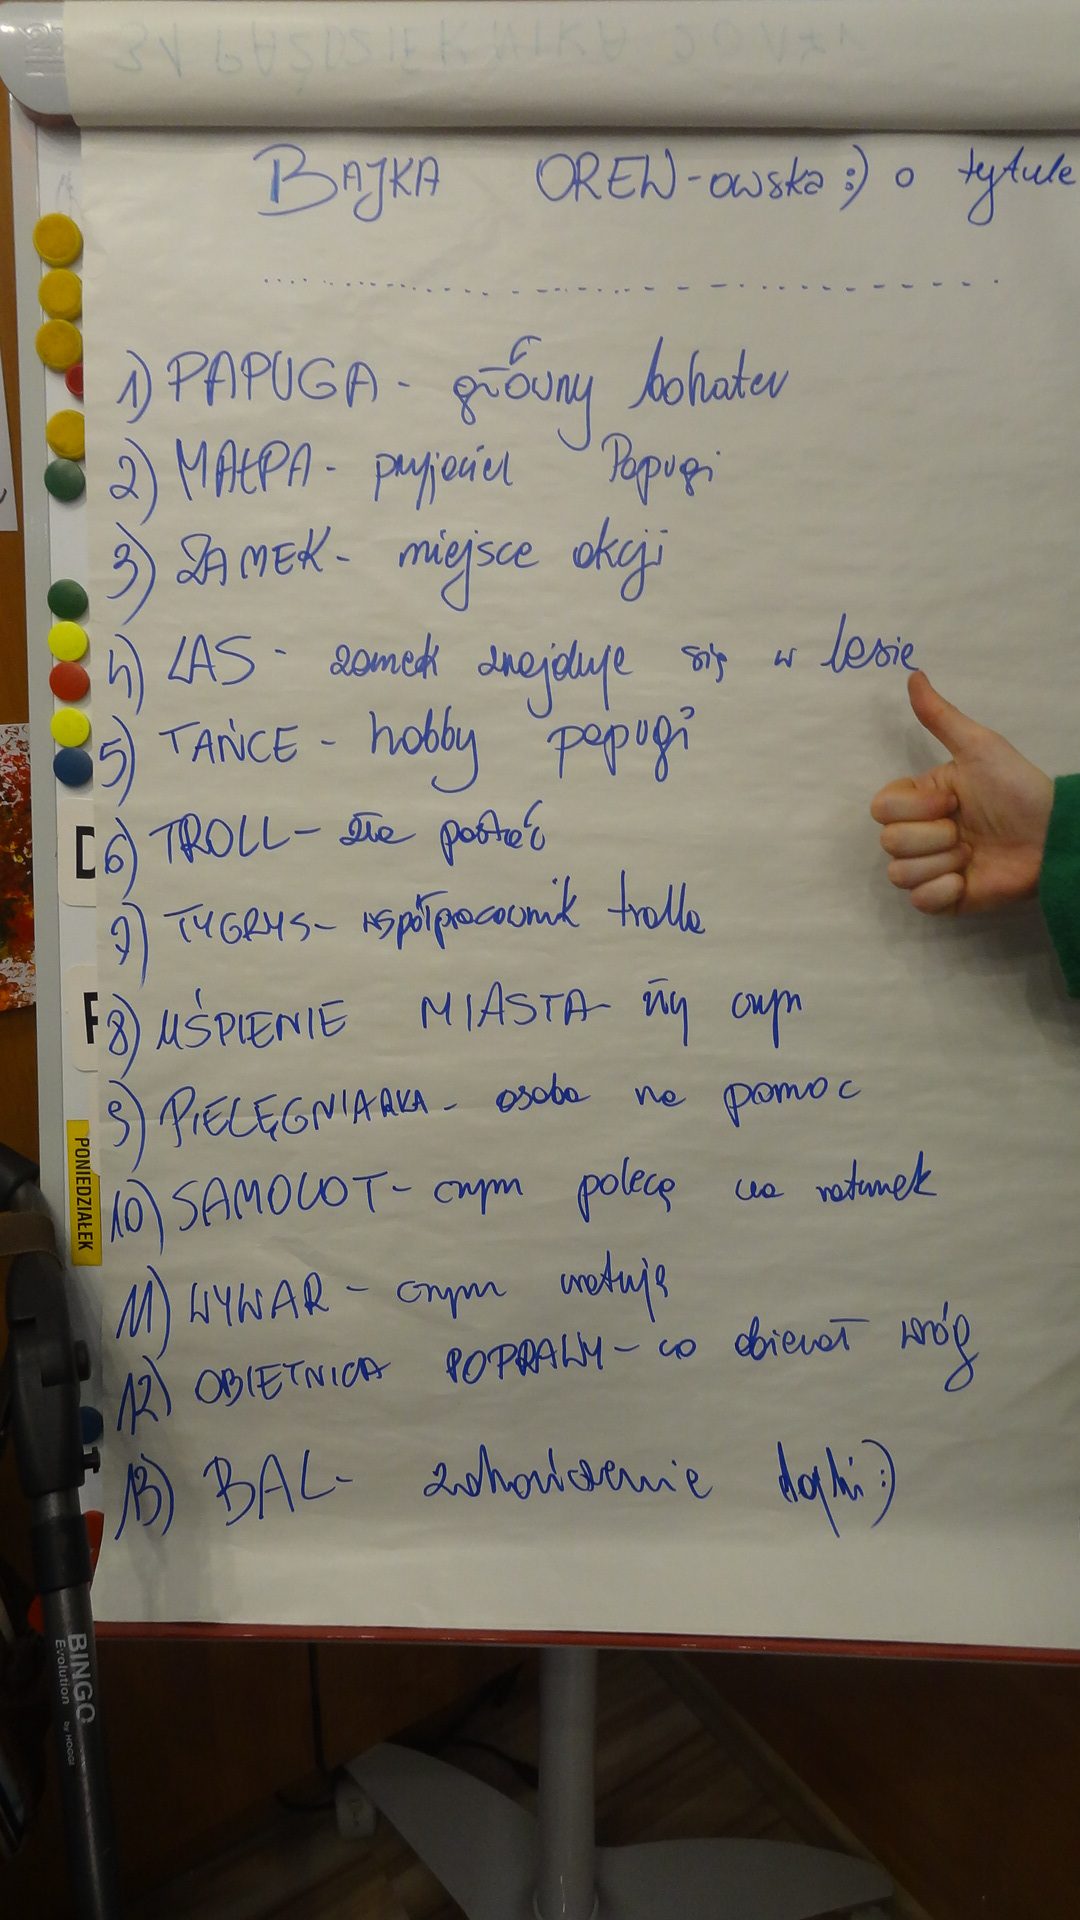 31 PAŹDZIERNIKA 2017r.
BAJKA OREW-owska :) o tytule
1) PAPUGA - główny bohater
2) MAŁPA - przyjaciel Papugi
3) ZAMEK - miejsce akcji
4) LAS - zamek znajduje się w lesie
5) TAŃCE - hobby papugi
6) TROLL - zła postać
7) TYGRYS - współpracownik trolla
8) UŚPIENIE MIASTA - zły czyn
9) PIELĘGNIARKA - osoba na pomoc
10) SAMOLOT - czym polecą na ratunek
11) WYWAR - czym uratują
12) OBIETNICA POPRAWY - co obiecał wróg
13) BAL - zakończenie :)
D
P
PONIEDZIAŁEK
BINGO
Evolution by HOOGI